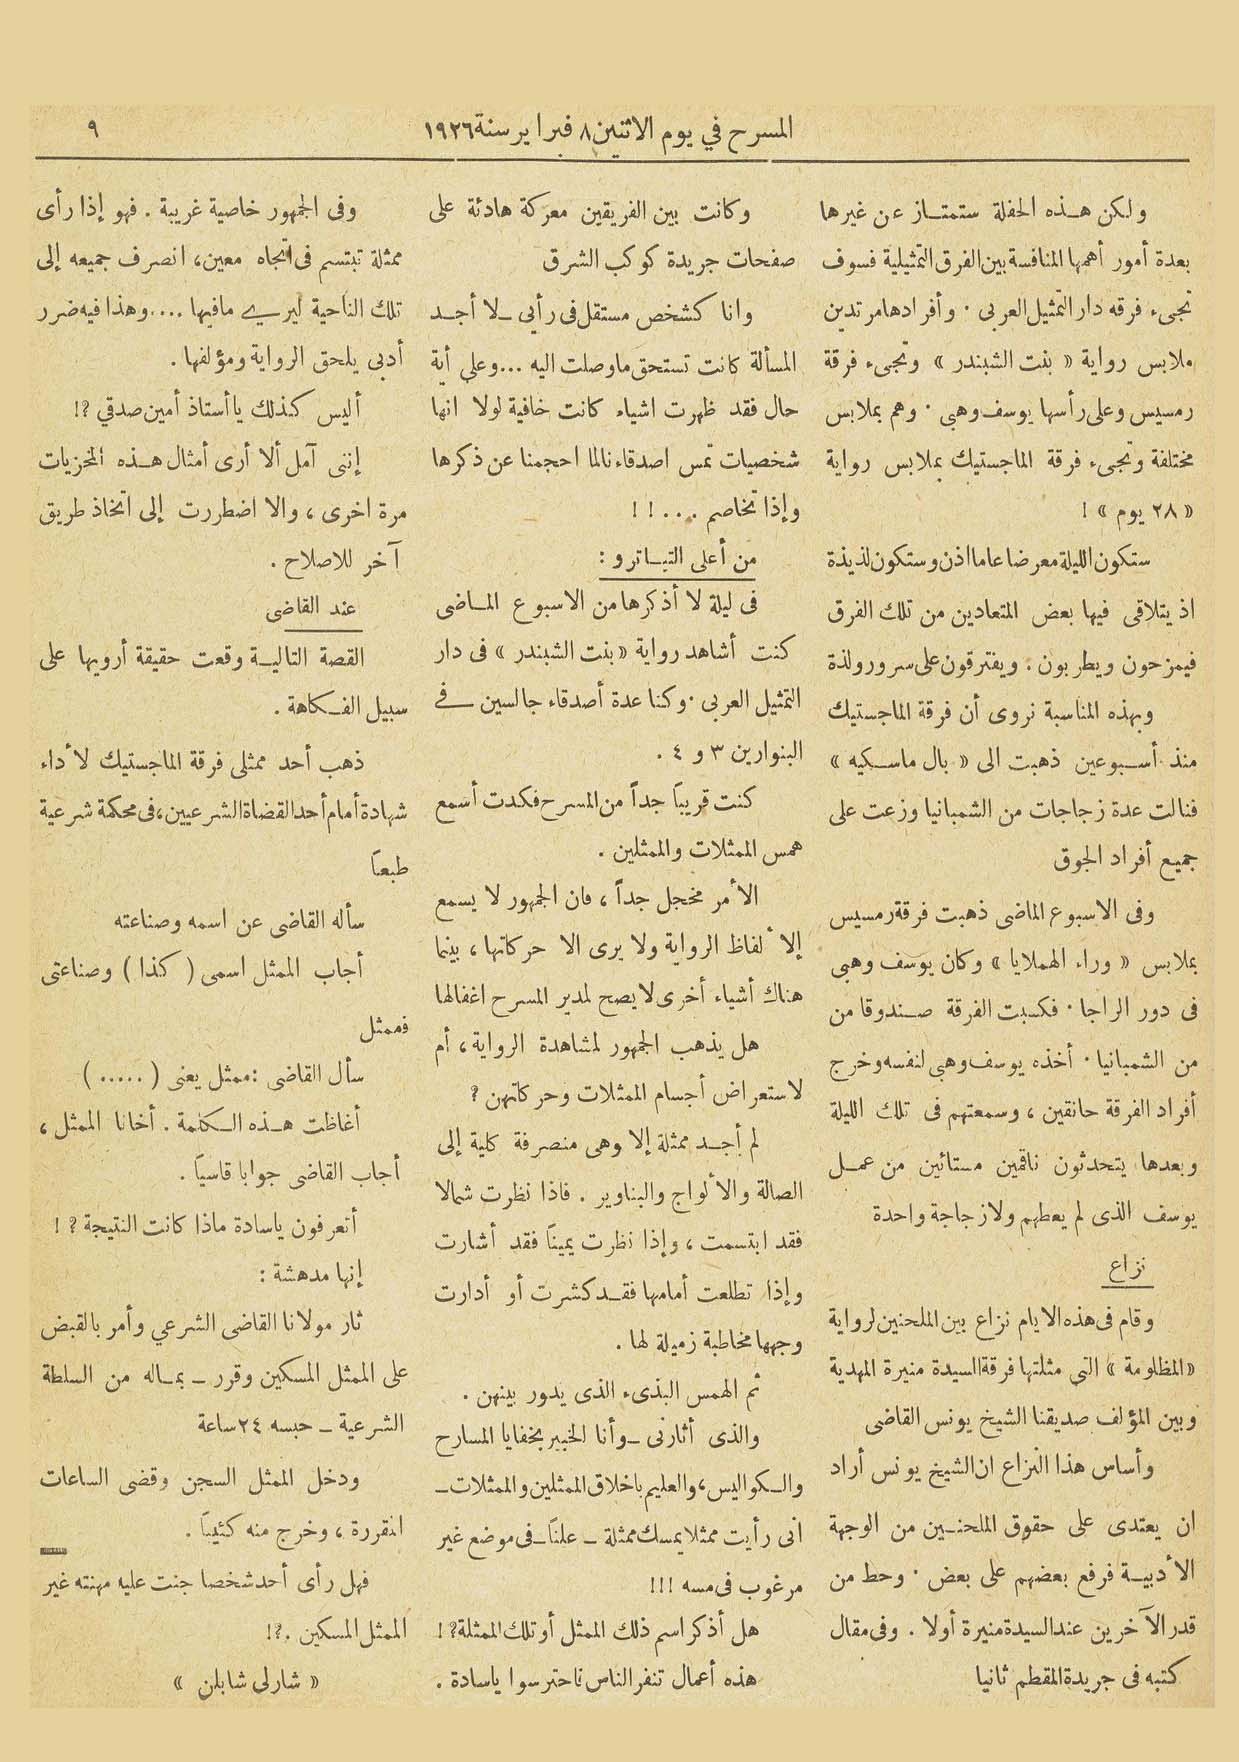 المسرح في يوم الاثنين ٨ فبراير سنة ١٩٢٦
٩
ولكن هـذه الحفلة ستمتـاز عن غيرها
بعدة أمور أهمها المنافسة بين الفرق التمثيلية فسوف
تجىء فرقه دار التمثيل العربى . وأفرادها مرتدين
ملابس رواية « بنت الشبندر » وتجىء فرقة
رمسيس وعلى رأسها يوسف وهبى . وهم بملابس
مختلفة وتجىء فرقة الماجستيك بملابس رواية
« ٢٨ يوم » !
ستكون الليلة معرضا عاما اذن وستكون لذيذة
اذ يتلاقى فيها بعض المتعادين من تلك الفرق
فيمزحون ويطربون . ويفترقون على سرور ولذة
وبهذه المناسبة نروى أن فرقة الماجستيك
منذ أسـبوعين ذهبت الى « بال ماسـكيه »
فنالت عدة زجاجات من الشمبانيا وزعت على
جميع أفراد الجوق
وفى الاسبوع الماضى ذهبت فرقة رمسيس
بملابس « وراء الهملايا » وكان يوسف وهبى
فى دور الراجا . فكسبت الفرقة صـندوقا من
من الشمبانيا . أخذه يوسف وهبى لنفسه وخرج
أفراد الفرقة حانقين ، وسمعتهم فى تلك الليلة
وبعدها يتحدثون ناقمين مستائين من عمـل
يوسف الذى لم يعطهم ولا زجاجة واحدة
نزاع
وقام فى هذه الايام نزاع بين الملحنين لرواية
«المظلومة » التى مثلتها فرقة السيدة منيرة المهدية
وبين المؤلف صديقنا الشيخ يونس القاضى
وأساس هذا النزاع ان الشيخ يونس أراد
ان يعتدى على حقوق الملحنـين من الوجهة
الأدبيـة فرفع بعضهم على بعض . وحط من
قدر الآخرين عند السيدة منيرة أولا . وفى مقال
كتبه فى جريدة المقطم ثانيا
وكانت بين الفريقين معركة هادئة على
صفحات جريدة كوكب الشرق
وانا كشخص مستقل فى رأيى ـ لا أجـد
المسألة كانت تستحق ما وصلت اليه ... وعلى أية
حال فقد ظهرت اشياء كانت خافية لولا انها
شخصيات تمس اصدقاء نا لما احجمنا عن ذكرها
وإذا تخاصم . . . ! !
من أعلى التيـاترو :
فى ليلة لا أذكرها من الاسبوع المـاضى
كنت أشاهد رواية «بنت الشبندر » فى دار
التمثيل العربى . وكنا عدة أصدقاء جالسين فى
البنوارين ٣ و ٤ .
كنت قريبًا جداً من المسرح فكدت أسمع
همس الممثلات والممثلين .
الأمر مخجل جداً ، فان الجمهور لا يسمع
إلا ألفاظ الرواية ولا يرى الا حركاتها ، بينما
هناك أشياء أخرى لا يصح لمدير المسرح اغفالها
هل يذهب الجمهور لمشاهدة الرواية ، أم
لاستعراض أجسام الممثلات وحركاتهن ؟
لم أجـد ممثلة إلا وهى منصرفة كلية إلى
الصالة والألواج والبناوير . فاذا نظرت شمالا
فقد ابتسمت ، وإذا نظرت يمينًا فقد أشارت
وإذا تطلعت أمامها فقـد كشرت أو أدارت
وجهها مخاطبة زميلة لها .
ثم الهمس البذىء الذى يدور بينهن .
والذى أثارنى ـ وأنا الخبير بخفايا المسارح
والـكواليس ، والعليم باخلاق الممثلين والممثلات ـ
انى رأيت ممثلا يمسك ممثلة ـ علنًا ـ فى موضع غير
مرغوب فى مسه !!!
هل أذكر اسم ذلك الممثل أو تلك الممثلة ؟!
هذه أعمال تنفر الناس فاحترسوا ياسادة .
وفى الجمهور خاصية غريبة . فهو إذا رأى
ممثلة تبتسم فى اتجاه معين ، انصرف جميعه إلى
تلك الناحية ليرى مافيها .... وهذا فيه ضرر
أدبى يلحق الرواية ومؤلفها .
أليس كذلك يا أستاذ أمين صدقي ؟!
إننى آمل ألا أرى أمثال هـذه المخزيات
مرة اخرى ، والا اضطررت إلى اتخاذ طريق
آخر للاصلاح .
عند القاضى
القصة التاليـة وقعت حقيقة أرويها على
سبيل الفـكاهة .
ذهب أحد ممثلى فرقة الماجستيك لأداء
شهادة أمام أحد القضاة الشرعيين ، فى محكمة شرعية
طبعًا
سأله القاضى عن اسمه وصناعته
أجاب الممثل اسمى ( كذا ) وصناعتى
فممثل
سأل القاضى : ممثل يعنى ( ..... )
أغاظت هـذه الـكلمة . أخانا الممثل ،
أجاب القاضى جوابا قاسيًا .
أتعرفون ياسادة ماذا كانت النتيجة ؟ !
إنها مدهشة :
ثار مولانا القاضى الشرعي وأمر بالقبض
على الممثل المسكين وقرر ـ بمـاله من السلطة
الشرعية ـ حبسه ٢٤ ساعة
ودخل الممثل السجن وقضى الساعات
المقررة ، وخرج منه كئيبًا .
فهل رأى أحد شخصا جنت عليه مهنته غير
الممثل المسكين .؟!
« شارلى شابلن »